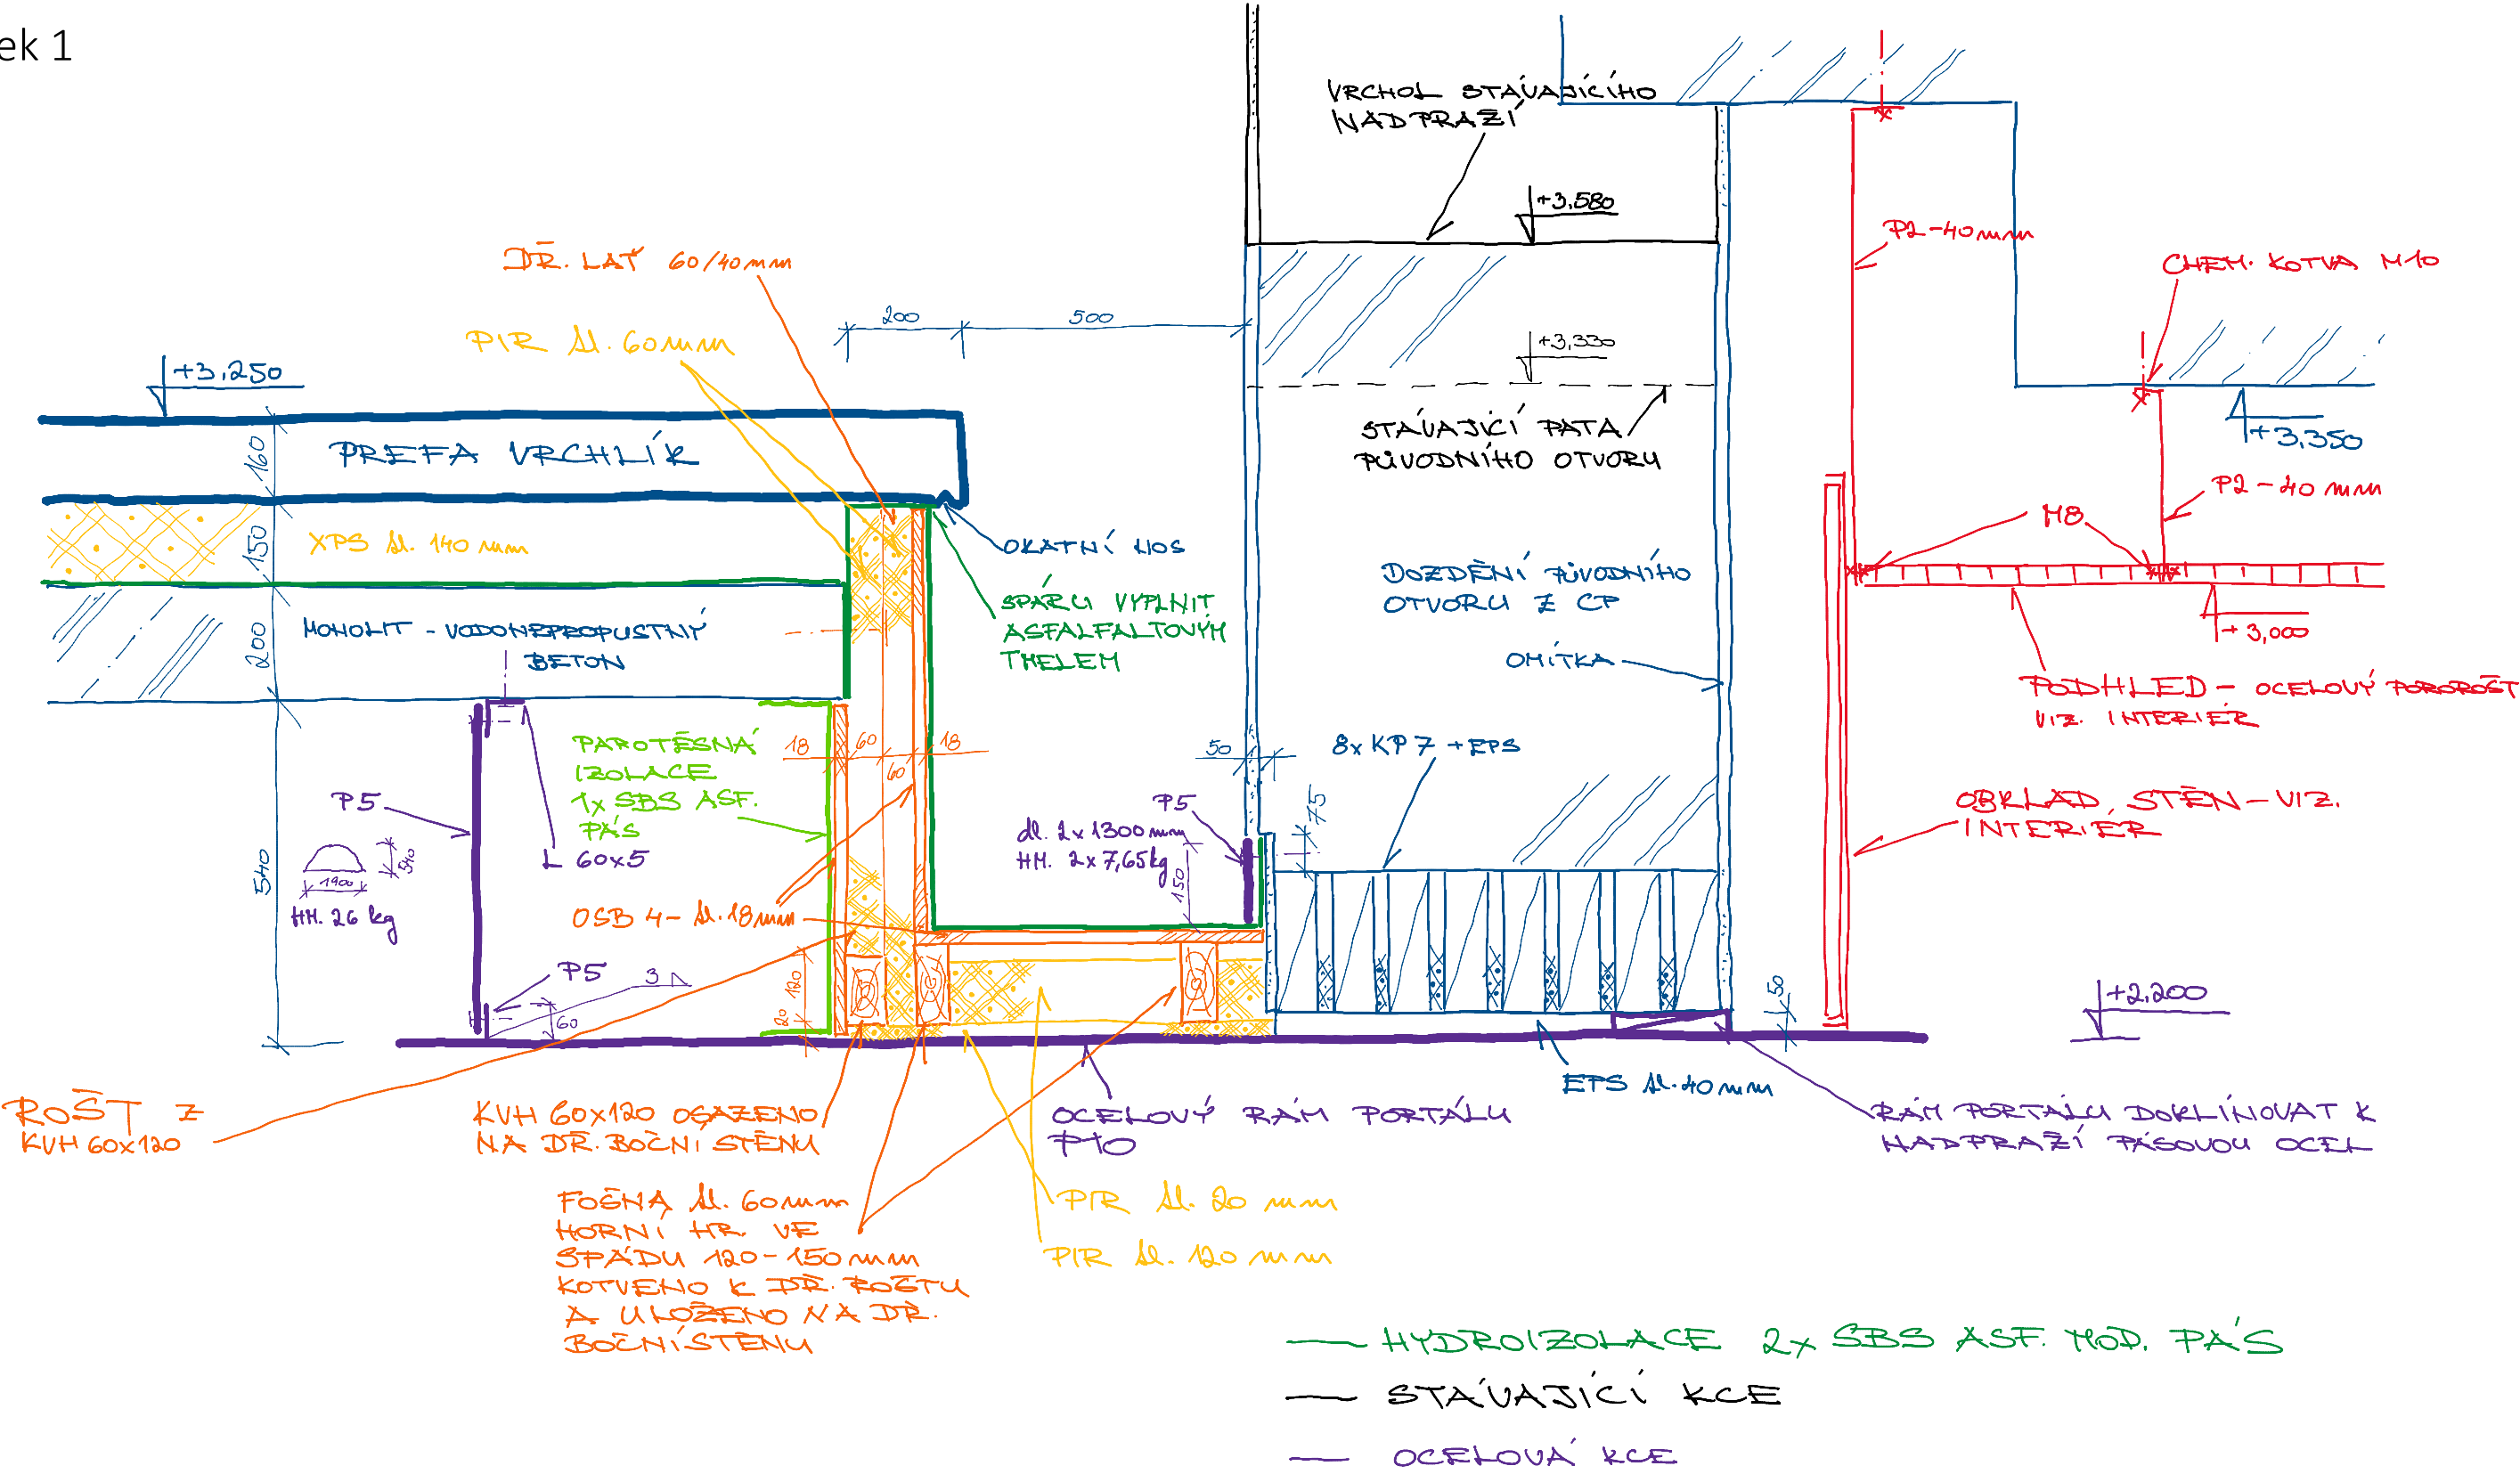 ek 1
VRCHOL STÁVAJÍCÍHO
NADPRAŽÍ
+3,580
P2-40mm
CHEM. KOTVA M10
DŘ. LAŤ 60/40mm
PIR tl. 60mm
200
500
+3,330
+3,250
STÁVAJÍCÍ PATA
PŮVODNÍHO OTVORU
+3,350
160
PREFA VRCHLÍK
P2-40mm
M8
150
XPS tl. 140mm
OKATNÍ NOS
DOZDĚNÍ PŮVODNÍHO
OTVORU Z CP
SPÁRU VYPLNIT
ASFALFALTOVÝM
TMELEM
+3,000
200
MONOLIT - VODONEPROPUSTNÝ
BETON
OMÍTKA
PODHLED - OCELOVÝ POROROŠT
VIZ. INTERIÉR
PAROTĚSNÁ
IZOLACE
1x SBS ASF.
PÁS
18
60
60
18
50
8x KP7 +EPS
75
P5
P5
dl. 2x1300mm
HM. 2x7,65kg
150
OBKLAD STĚN - VIZ.
INTERIÉR
L 60x5
540
540
1900
HM. 26 kg
OSB 4 - tl. 18mm
P5
3
60
120
20
50
+2,200
EPS tl. 40mm
ROŠT Z
KVH 60x120
KVH 60x120 OSAZENO
NA DŘ. BOČNÍ STĚNU
OCELOVÝ RÁM PORTÁLU
P10
RÁM PORTÁLU DOKLÍNOVAT K
NADPRAŽÍ PÁSOVOU OCEL
FOŠNA tl. 60mm
HORNÍ HR. VE
SPÁDU 120-150mm
KOTVENO K DŘ. ROŠTU
A ULOŽENO NA DŘ.
BOČNÍ STĚNU
PIR tl. 20 mm
PIR tl. 120 mm
HYDROIZOLACE 2x SBS ASF. MOD. PÁS
STÁVAJÍCÍ KCE
OCELOVÁ KCE